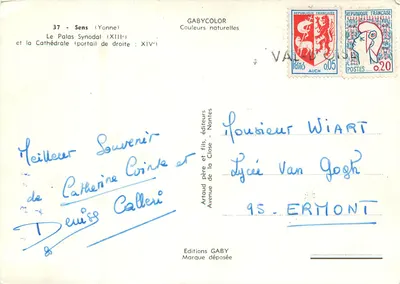 37 - Sens (Yonne)
Le Palais Synodal (XIIIe)
et la Cathédrale (portail de droite : XIVe)
GABYCOLOR
Couleurs naturelles
RÉPUBLIQUE FRANÇAISE
POSTES
0,05
AUCH
RÉPUBLIQUE FRANÇAISE
POSTES
0,20
Meilleur Souvenir
de Catherine Cointe et
Denise Calleri
Artaud père et fils, éditeurs
Avenue de la Close - Nantes
Monsieur WIART
Lycée Van Gogh
95-ERMONT
Editions GABY
Marque déposée